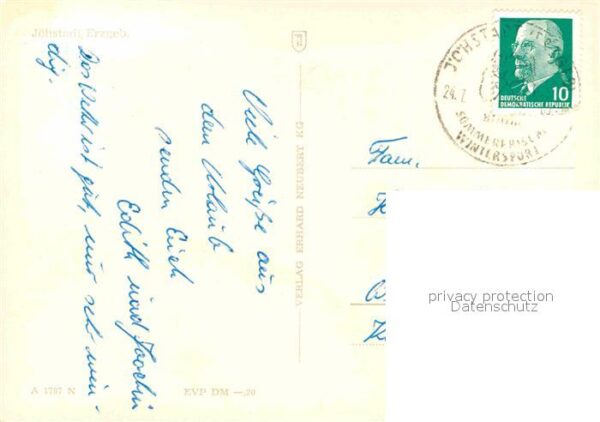 Jöhstadt Erzgeb.
Viele Grüße aus
dem Urlaub
senden Euch
Edith und Joachim
Das Wetter ist gut, nur sehr win-
dig.
A 1787 N
EVP DM —,20
VERLAG ERHARD NEUBERT KG
JÖHSTADT
24.7.
SOMMERFRISCHE
WINTERSPORT
10
DEUTSCHE
DEMOKRATISCHE REPUBLIK
Fam.
privacy protection
Datenschutz